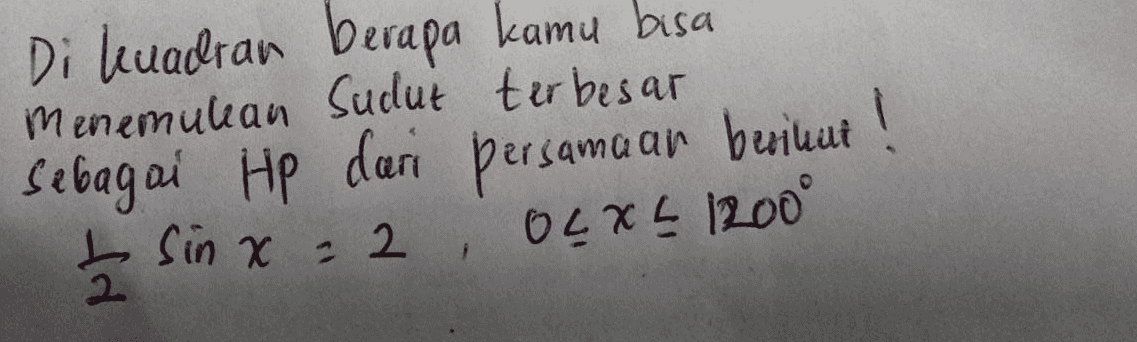 Di kuadran berapa kamu bisa
menemukan sudut terbesar
sebagai Hp dari persamaan berikut !
1/2 sin x = 2 , 0 ≤ x ≤ 1200°